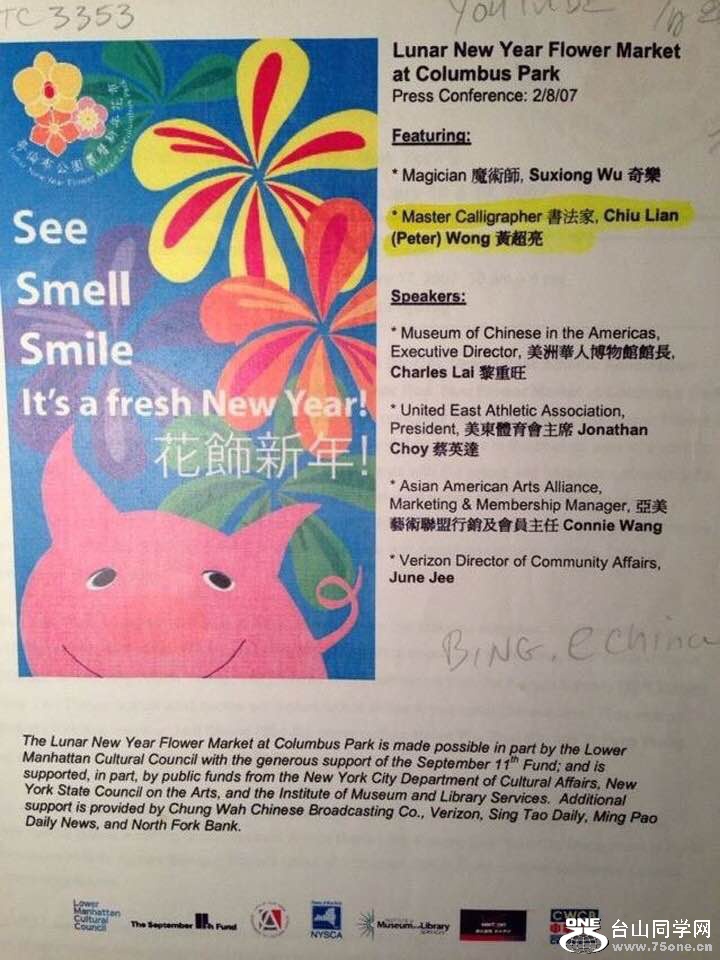 TC 3353
YOUTUBE
Lunar New Year Flower Market
at Columbus Park
Press Conference: 2/8/07
Featuring:
* Magician 魔術師, Suxiong Wu 奇樂
* Master Calligrapher 書法家, Chiu Lian
(Peter) Wong 黃超亮
Speakers:
* Museum of Chinese in the Americas,
Executive Director, 美洲華人博物館館長,
Charles Lai 黎重旺
* United East Athletic Association,
President, 美東體育會主席 Jonathan
Choy 蔡英達
* Asian American Arts Alliance,
Marketing & Membership Manager, 亞美
藝術聯盟行銷及會員主任 Connie Wang
* Verizon Director of Community Affairs,
June Jee
BING. echina
哥倫布公園農曆新年花市
Lunar New Year Flower Market At Columbus Park
See
Smell
Smile
It's a fresh New Year!
花飾新年!
The Lunar New Year Flower Market at Columbus Park is made possible in part by the Lower
Manhattan Cultural Council with the generous support of the September 11th Fund; and is
supported, in part, by public funds from the New York City Department of Cultural Affairs, New
York State Council on the Arts, and the Institute of Museum and Library Services. Additional
support is provided by Chung Wah Chinese Broadcasting Co., Verizon, Sing Tao Daily, Ming Pao
Daily News, and North Fork Bank.
Lower
Manhattan
Cultural
Council
The September 11th Fund
NYSCA
Museum and Library
CWCB
ONE 台山同学网
www.75one.cn